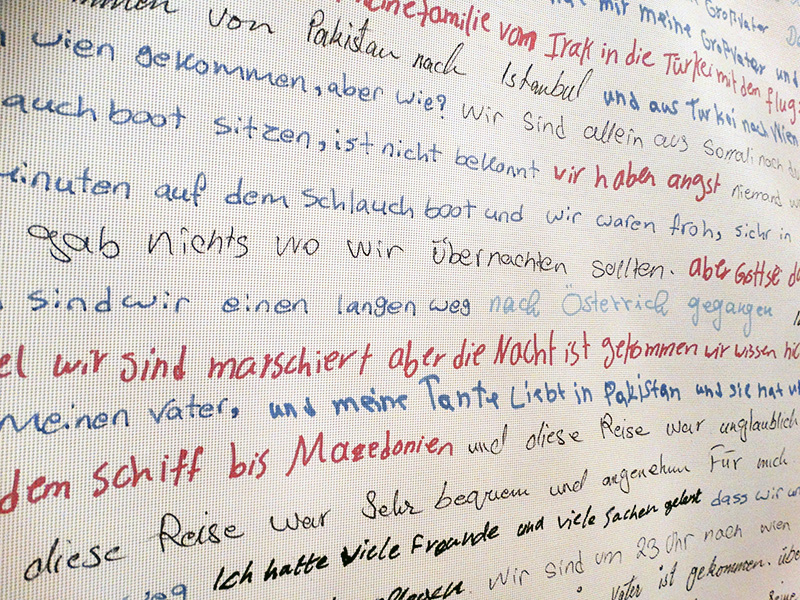 von Pakistan nach Istanbul und aus Turkei nach Wien
meine familie vom Irak in die Türkei mit dem flug
mir meine Großvater und
Großvater
wien gekommen, aber wie? wir sind allein aus Somali nach
auch boot sitzen, ist nicht bekonnt wir haben angst niemand
minuten auf dem Schlauch boot und wir waren froh, sichr in
gab nichts wo wir übernachten sollten. aber Gottsei
sind wir einen langen weg nach Österrich gegangen
wir sind marschiert aber die Nacht ist gekommen wir wissen
Meinen Vater, und meine Tante Liebt in Pakistan und sie hat
dem schiff bis Mazedonien und diese Reise war unglaublich
diese Reise war Sehr bequem und angenehm Für mich
Ich hatte viele Freunde und viele Sachen gelernt dass wir
Wir sind um 23 Uhr nach wien
Vater ist gekommen.